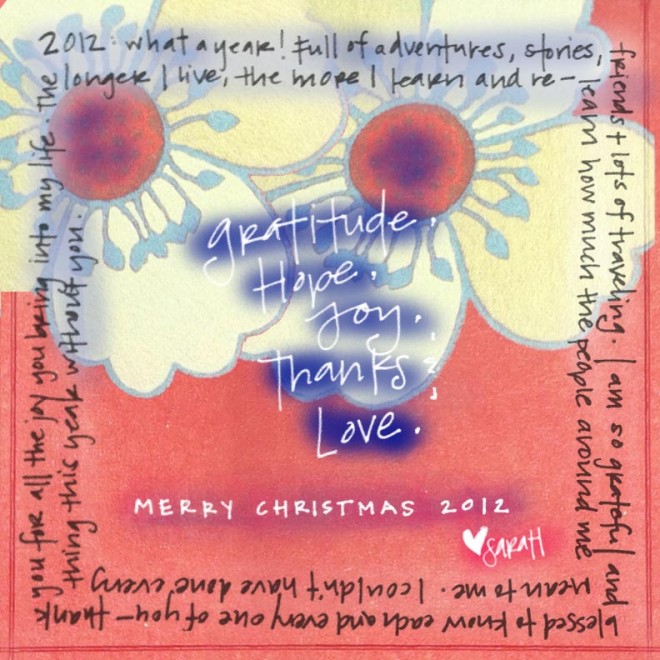 2012: what a year! Full of adventures, stories,
friends + lots of traveling. I am so grateful and
blessed to know each and every one of you – thank
you for all the joy you bring into my life. The
longer I live, the more I learn and re-
learn how much the people around me
mean to me. I couldn't have done every
thing this year without you.
gratitude.
Hope.
Joy.
Thanks.
Love.
MERRY CHRISTMAS 2012
♥SARAH